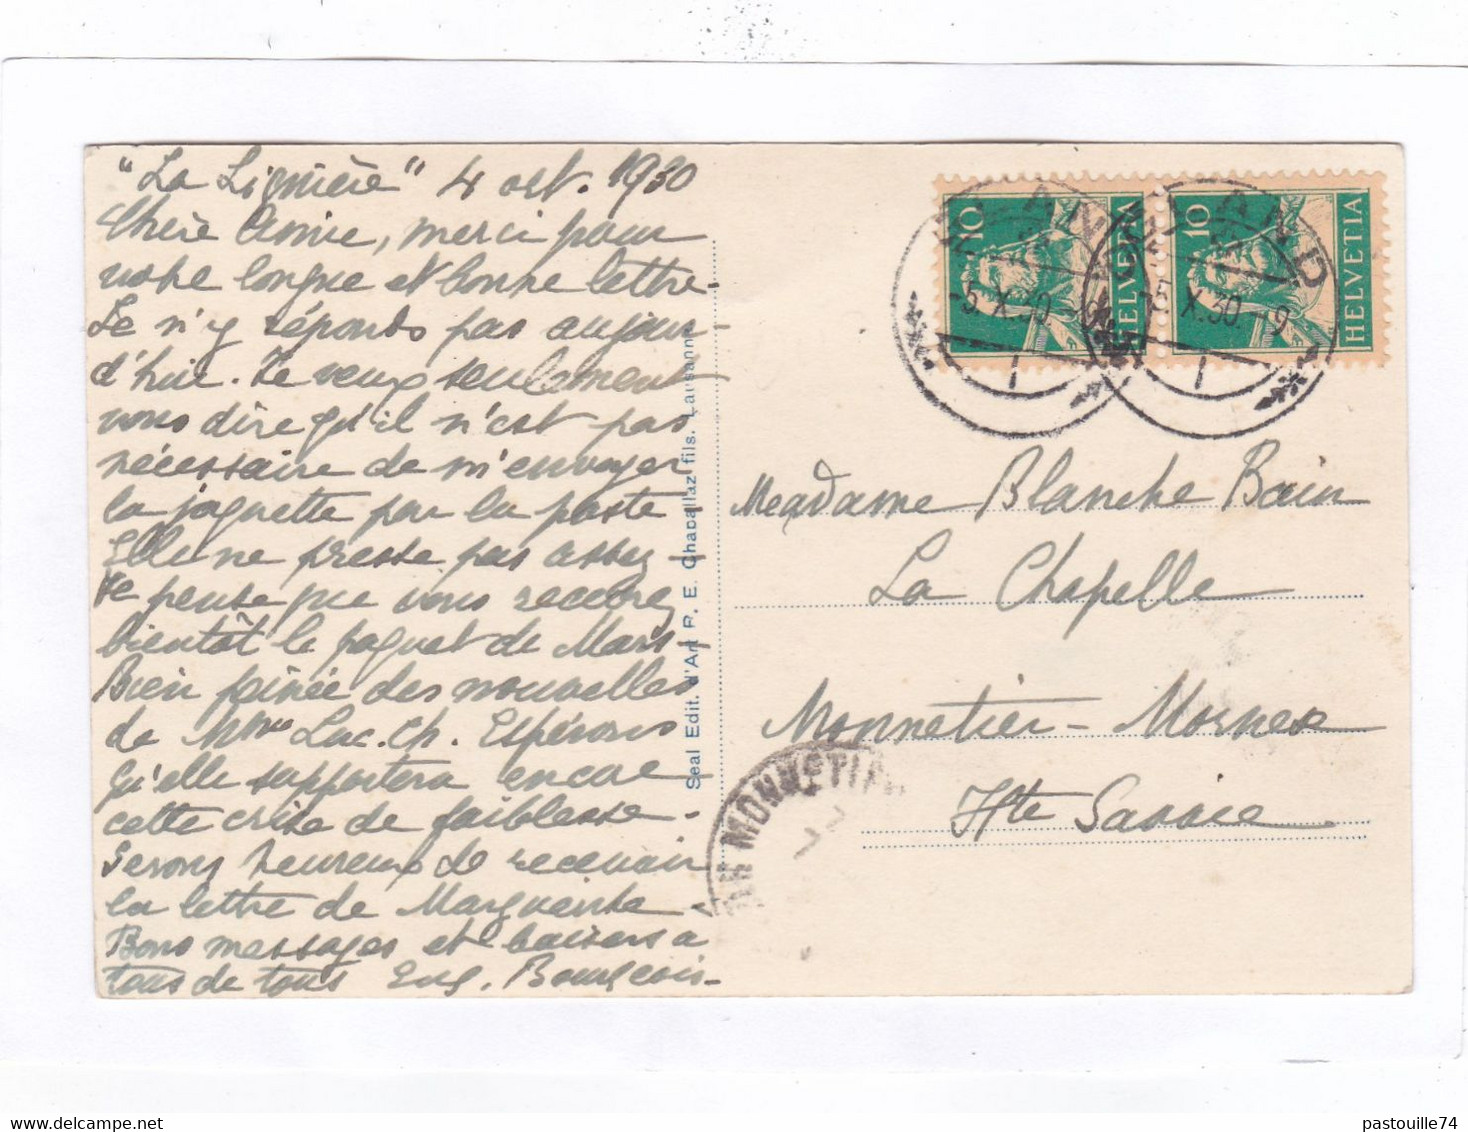 "La Lignière" 4 oct. 1930
Chère Amie, merci pour
votre longue et bonne lettre.
Je n'y réponds pas aujour-
d'hui. Je veux seulement
vous dire qu'il n'est pas
nécessaire de m'envoyer
la jaquette par la poste.
Elle ne presse pas assez
Je pense que vous recevrez
bientôt le paquet de Mars.
Bien peinée des nouvelles
de Mme Luc. Ch. Espérons
qu'elle supportera encore
cette crise de faiblesse.
Serons heureux de recevoir
la lettre de Marguerite
Bons messages et baisers à
tous de tous Eug. Bourgeois.
Seal Edit. d'Art P. E. Chapallaz fils. Lausanne
10 HELVETIA
10 HELVETIA
GLAND
-5.X.30
GLAND
-5.X.30.-9
Madame Blanche Bain
La Chapelle
Monnetier-Mornex
Hte Savoie
MONNETIER
pastouille74